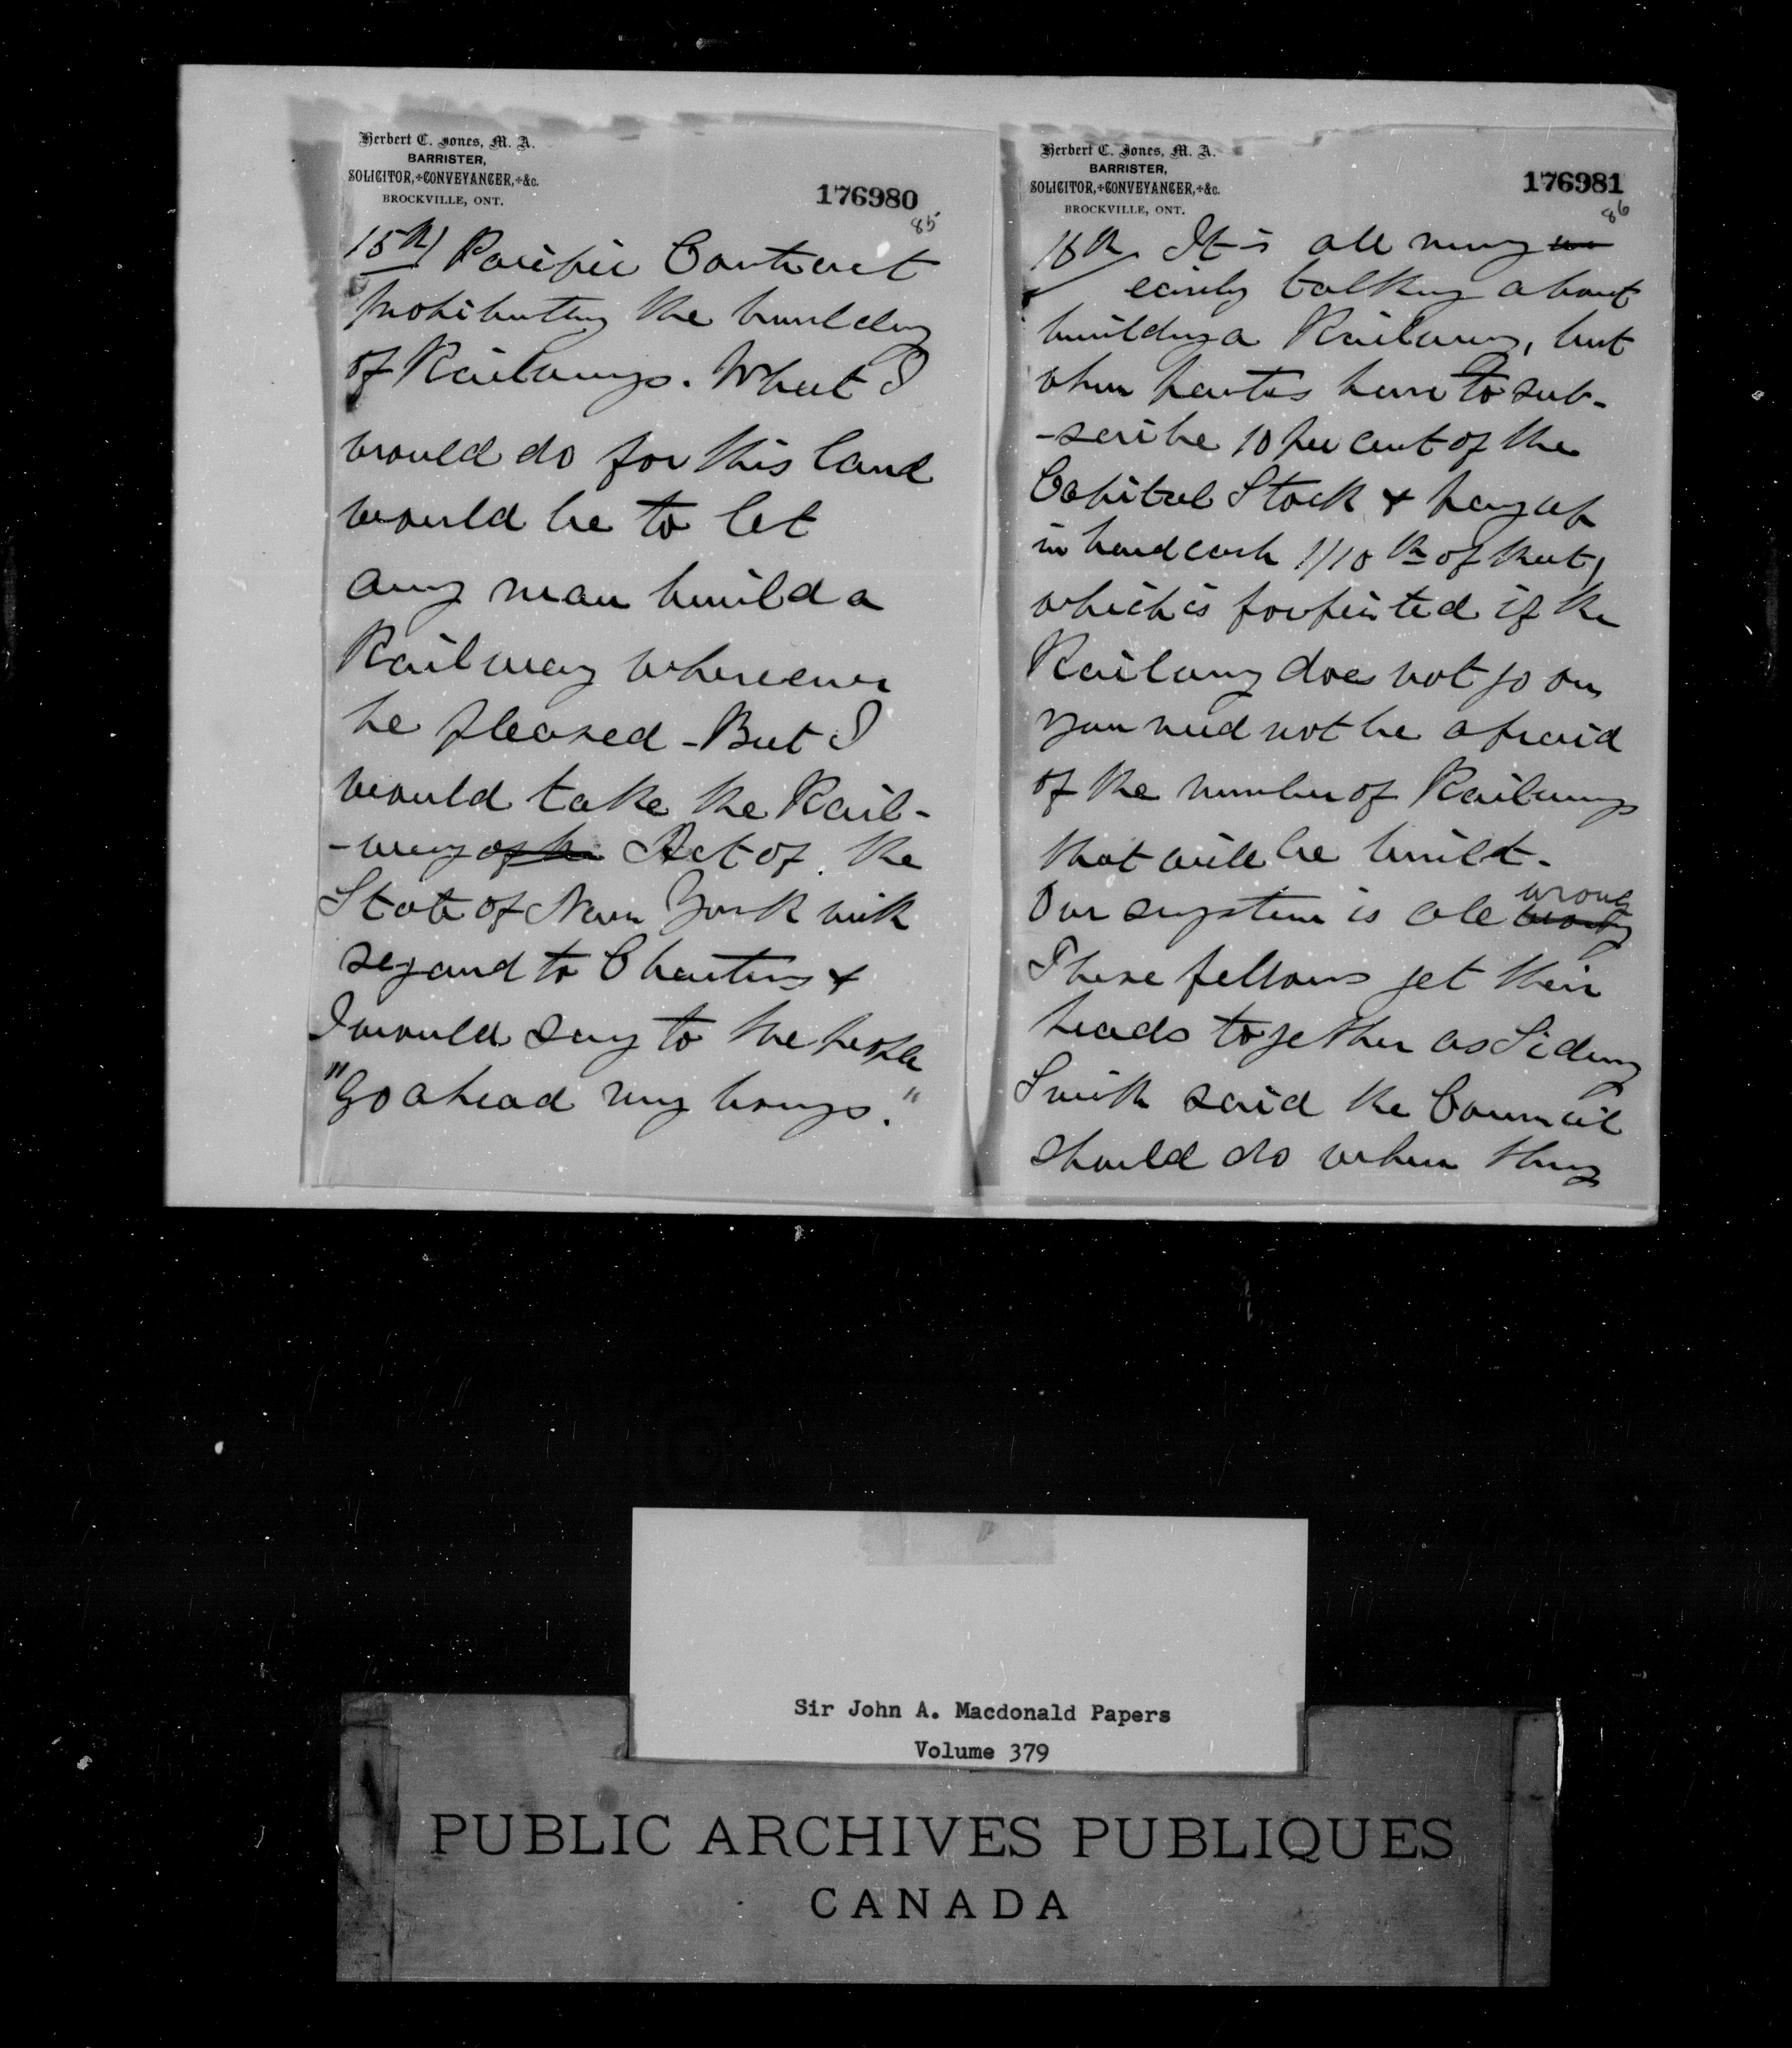 Herbert C. Jones, M. A.
BARRISTER,
SOLICITOR, CONVEYANCER, &c.
BROCKVILLE, ONT.
176980
85
15th Pacific Contract
prohibiting the building
of Railways. What I
would do for this land
would be to let
any man build a
Railway wherever
he pleased - But I
would take the Rail-
-way of the Act of the
State of New York with
regard to Charters &
I would say to the people
"Go ahead my boys."
Herbert C. Jones, M. A.
BARRISTER,
SOLICITOR, CONVEYANCER, &c.
BROCKVILLE, ONT.
176981
86
16th It is all very
easily talking about
building a Railway, but
when parties have to sub-
-scribe 10 per cent of the
Capital Stock & pay up
in hard cash 1/10th of that,
which is forfeited if the
Railway does not go on
you need not be afraid
of the number of Railways
that will be built.
Our system is all wrong
These fellows get their
heads together as Sidney
Smith said the Council
should do when they
Sir John A. Macdonald Papers
Volume 379
PUBLIC ARCHIVES PUBLIQUES
CANADA